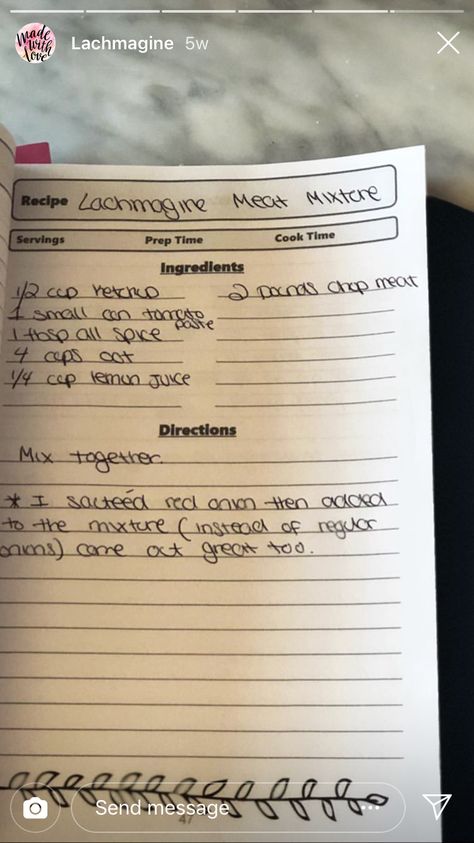 made with love
Lachmagine 5w
Recipe Lachmagine Meat Mixture
Servings Prep Time Cook Time
Ingredients
1/2 cup ketchup
2 pounds chop meat
1 small can tomato paste
1 tbsp all spice
4 cups oat
1/4 cup lemon juice
Directions
Mix together.
* I sauteéd red onion then added
to the mixture (instead of regular
onions) came out great too.
47
Send message